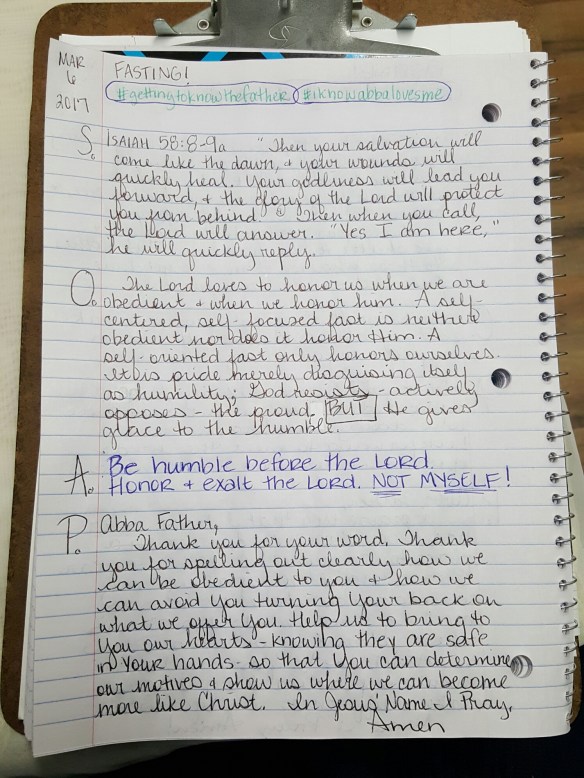 MAR
6
2017
FASTING!
#gettingtoknowthefather #iknowabbalovesme
S. ISAIAH 58:8-9a "Then your salvation will
come like the dawn, + your wounds will
quickly heal. Your godliness will lead you
forward, + the glory of the Lord will protect
you from behind. ⁹ Then when you call,
the Lord will answer. "Yes I am here,"
he will quickly reply.
O. The Lord loves to honor us when we are
obedient + when we honor him. A self-
centered, self-focused fast is neither
obedient nor does it honor Him. A
self-oriented fast only honors ourselves.
It is pride merely disguising itself
as humility; God resists - actively
opposes - the proud. BUT He gives
grace to the humble.
A. Be humble before the LORD.
Honor + exalt the LORD. NOT MYSELF!
P. Abba Father,
Thank you for your word. Thank
you for spelling out clearly how we
can be obedient to you + how we
can avoid You turning Your back on
what we offer You. Help us to bring to
You our hearts - knowing they are safe
in Your hands - so that You can determine
our motives + show us where we can become
more like Christ. In Jesus' Name I Pray,
Amen